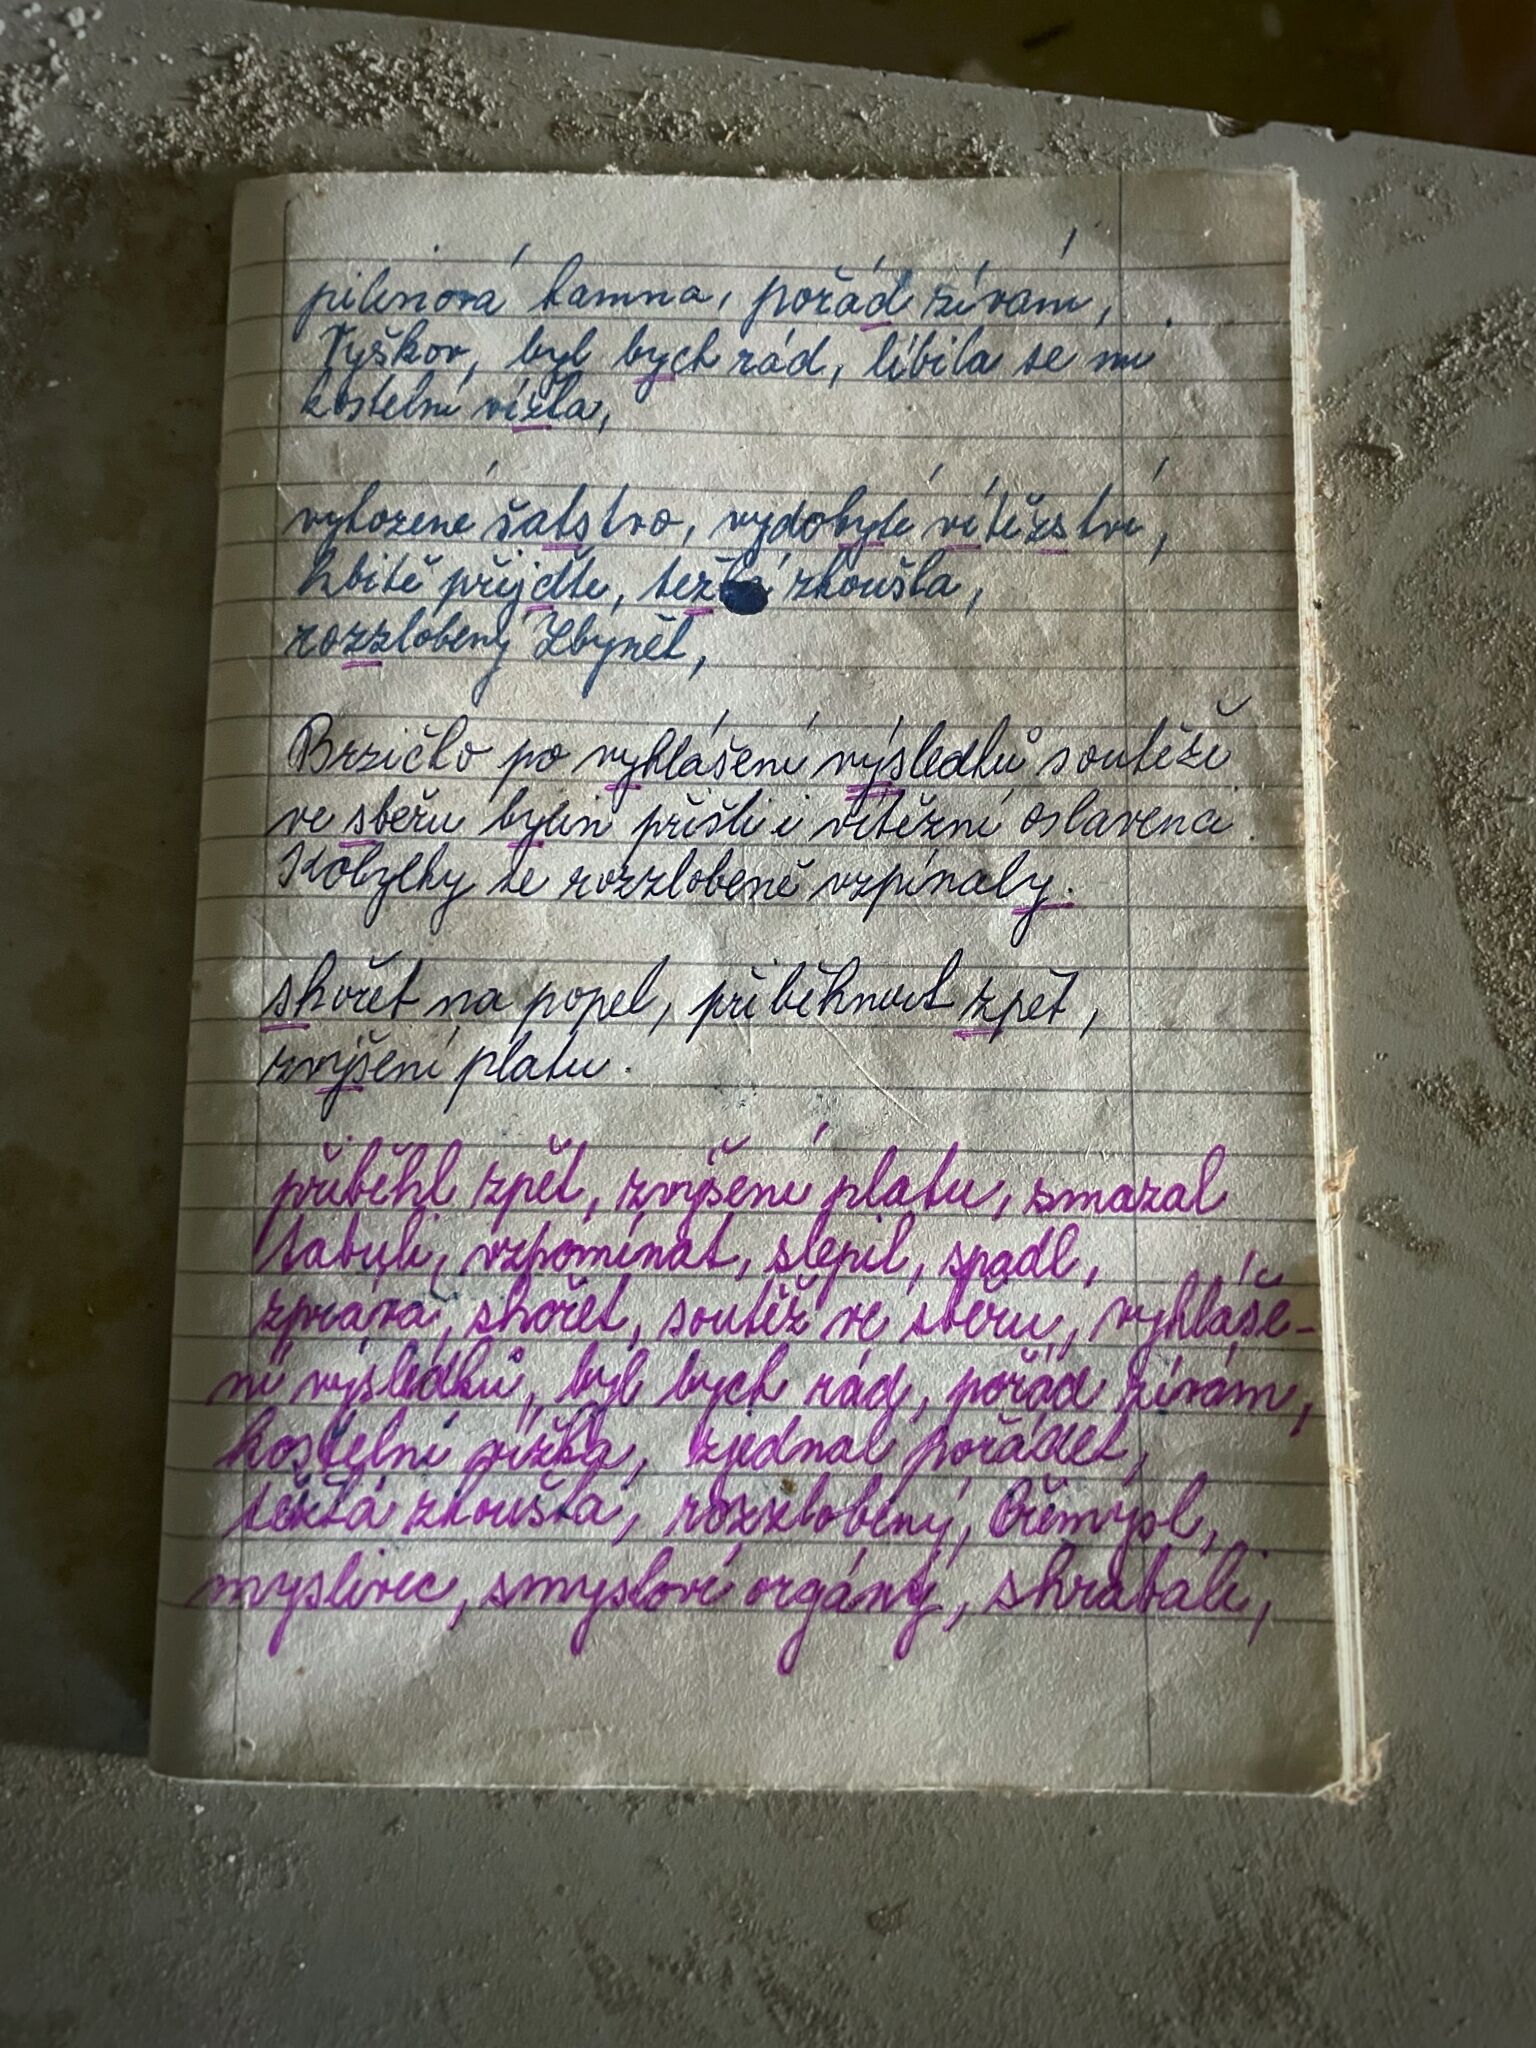 pilinová kamna, pořád zívám,
Vyškov, byl bych rád, líbila se mi
kostelní vížka,
vyhozené šatstvo, vydobyté vítězství,
hbitě přijďte, težká zkouška,
rozzlobený Zbyněk,
Brzičko po vyhlášení výsledků soutěži
ve sběru bylin přišli i vítězní oslavenci.
Kobylky se rozzlobeně vzpínaly.
shořet na popel, přiběhnout zpět,
zvýšení platu.
přiběhl zpět, zvýšení platu, smazal
tabuli, vzpomínat, slepil, spadl,
zpráva, shořet, soutěž ve sběru, vyhláše-
ní výsledků, byl bych rád, pořád zívám,
kostelní vížka, zjednal pořádek,
težká zkouška, rozzlobený, Přemysl,
myslivec, smyslové orgány, shrabali,